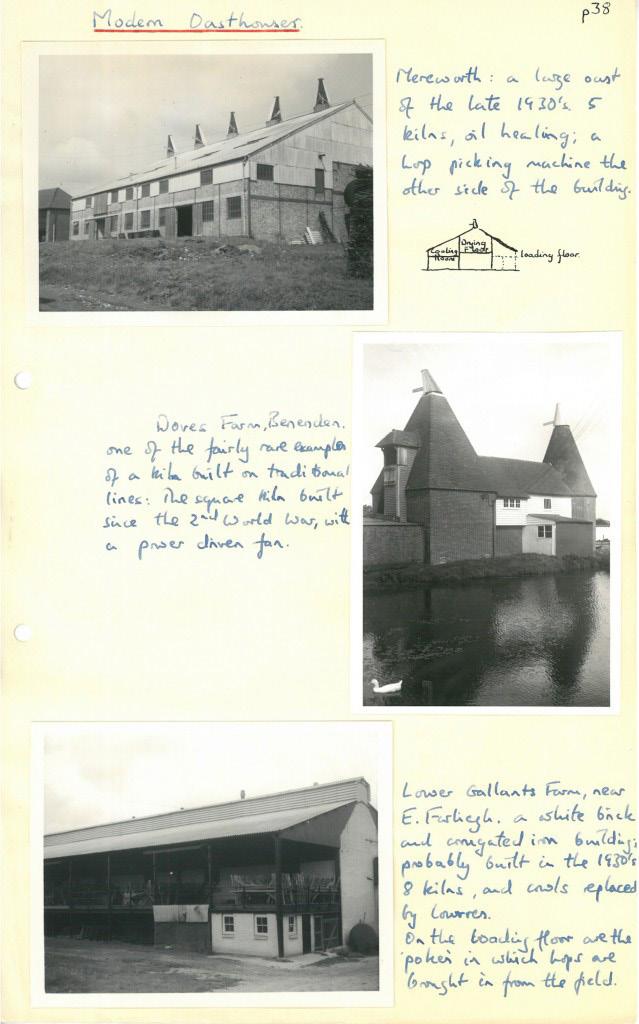 p38
Modern Oasthouses.
Mereworth: a large oast
of the late 1930's. 5
kilns, oil heating; a
hop picking machine the
other side of the building.
Drying
Floor
Cooling
Room
loading floor.
Doves Farm, Benenden.
one of the fairly rare examples
of a kiln built on traditional
lines: The square kiln built
since the 2nd World War, with
a power driven fan.
Lower Gallants Farm, near
E. Farleigh. a white brick
and corrugated iron building;
probably built in the 1930's
8 kilns, and cowls replaced
by louvres.
On the loading floor are the
'pokes' in which hops are
brought in from the field.